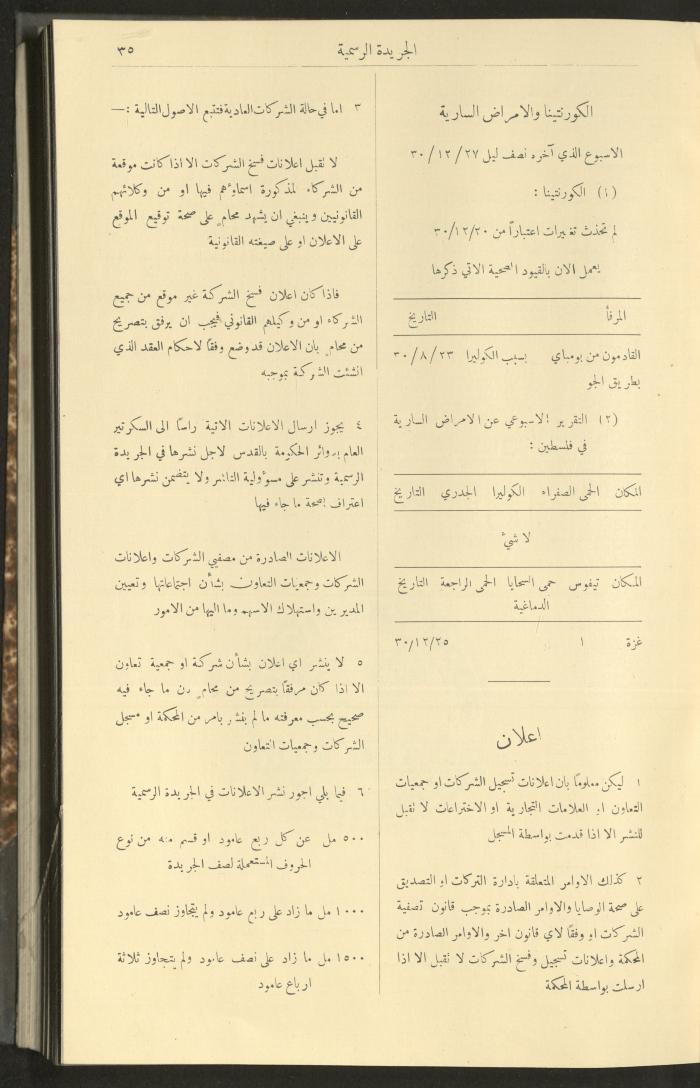 الجريدة الرسمية
٣٥
الكورنتينا والامراض السارية
الاسبوع الذي آخره نصف ليل ٢٧/ ١٢/ ٣٠
(١) الكورنتينا :
لم تحدث تغييرات اعتباراً من ٣٠/١٢/٢٠
يعمل الان بالقيود الصحية الاتي ذكرها
المرفأ التاريخ
القادمون من بومباي بسبب الكوليرا ٢٣/ ٨/ ٣٠
بطريق الجو
(٢) التقرير الاسبوعي عن الامراض السارية
في فلسطين :
المكان الحمى الصفراء الكوليرا الجدري التاريخ
لا شيء
المكان تيفوس حمى السحايا الحمى الراجعة التاريخ
الدماغية
غزة ١ ٣٠/١٢/٢٥
اعلان
١ ليكن معلوماً بان اعلانات تسجيل الشركات او جمعيات
التعاون او العلامات التجارية او الاختراعات لا نقبل
للنشر الا اذا قدمت بواسطة المسجل
٢ كذلك الاوامر المتعلقة بادارة التركات او التصديق
على صحة الوصايا والاوامر الصادرة بموجب قانون تصفية
الشركات او وفقاً لاي قانون اخر والاوامر الصادرة من
المحكمة واعلانات تسجيل وفسخ الشركات لا نقبل الا اذا
ارسلت بواسطة المحكمة
٣ اما في حالة الشركات العادية فتتبع الاصول التالية :—
لا نقبل اعلانات فسخ الشركات الا اذا كانت موقعة
من الشركاء المذكورة اسماؤهم فيها او من وكلائهم
القانونيين وينبغي ان يشهد محام على صحة توقيع الموقع
على الاعلان او على صيغته القانونية
فاذا كان اعلان فسخ الشركة غير موقع من جميع
الشركاء او من وكيلهم القانوني فيجب ان يرفق بتصريح
من محام بان الاعلان قد وضع وفقاً لاحكام العقد الذي
انشئت الشركة بموجبه
٤ يجوز ارسال الاعلانات الاتية راساً الى السكرتير
العام بدوائر الحكومة بالقدس لاجل نشرها في الجريدة
الرسمية وتنشر على مسؤولية الناشر ولا يتضمن نشرها اي
اعتراف بصحة ما جاء فيها
الاعلانات الصادرة من مصفيي الشركات واعلانات
الشركات وجمعيات التعاون بشأن اجتماعاتها وتعيين
المديرين واستهلاك الاسهم وما اليها من الامور
٥ لا ينشر اي اعلان بشأن شركة او جمعية تعاون
الا اذا كان مرفقاً بتصريح من محام ان ما جاء فيه
صحيح بحسب معرفته ما لم ينشر بامر من المحكمة او مسجل
الشركات وجمعيات التعاون
٦ فيما يلي اجور نشر الاعلانات في الجريدة الرسمية
٥٠٠ مل عن كل ربع عامود او قسم منه من نوع
الحروف المستعملة لصف الجريدة
١٠٠٠ مل ما زاد على ربع عامود ولم يتجاوز نصف عامود
١٥٠٠ مل ما زاد على نصف عامود ولم يتجاوز ثلاثة
ارباع عامود